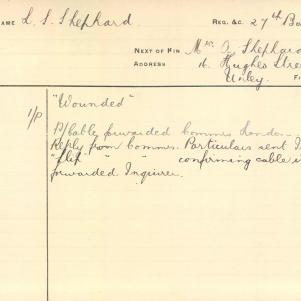 NAME L. S. Shephard. REG. &C. 27th Ba
NEXT OF KIN Mrs. A. Shephard
ADDRESS 16. Hughes Stree
Unley.
"Wounded"
P/Cable forwarded Commes London
Reply from Commes. Particulars sent
" " confirming cable
forwarded Inquirer.